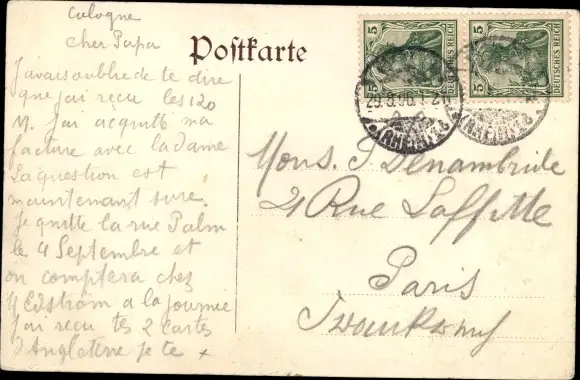 Cologne
Cher Papa
J'avais oublié de te dire
que j'ai reçu les 120
M. J'ai acquitté ma
facture avec la dame
La question est
maintenant sure.
Je quitte la rue Palm
le 4 Septembre et
on comptera chez
Edstrom a la journée
J'ai reçu tes 2 cartes
d'Angleterre je te x
Postkarte
5 DEUTSCHES REICH 5
5 DEUTSCHES REICH
(RHEIN)
(RHEIN)
Mons. J Denambride
21 Rue Laffitte
Paris
Frankreich